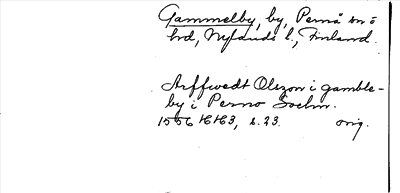 Gammelby, by, Pernå sn ö
hrd, Nylands l., Finland.
Arffwedt Olszon i gamble-
by i Perno Sochn.
1556 16163, s. 23. orig.